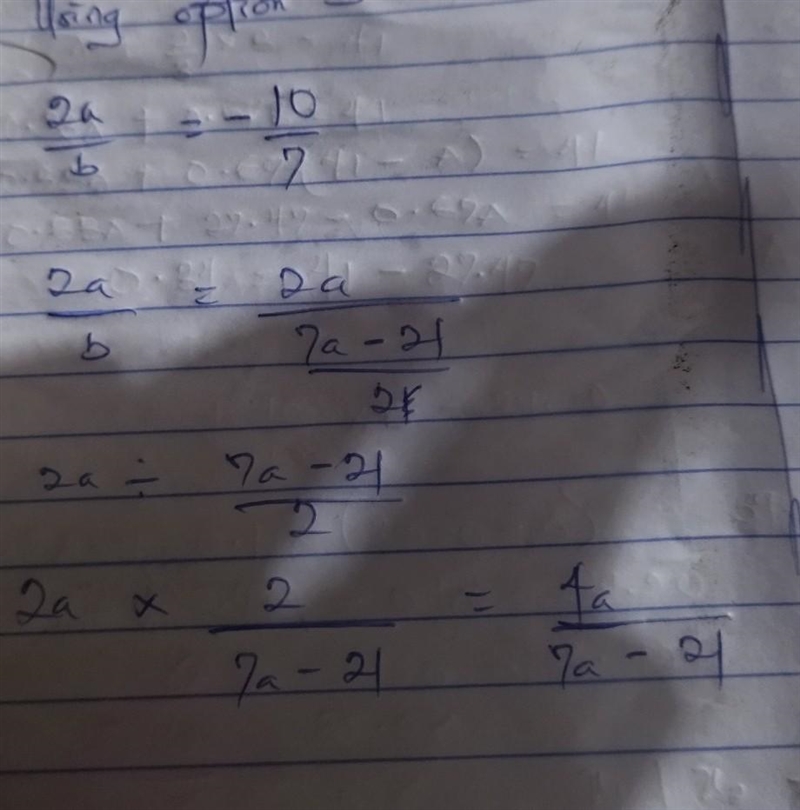 Using option
2a/b = - 10/7
2a/b = 2a/((7a - 21)/2)
2a ÷ (7a - 21)/2
2a × 2/(7a - 21) = 4a/(7a - 21)